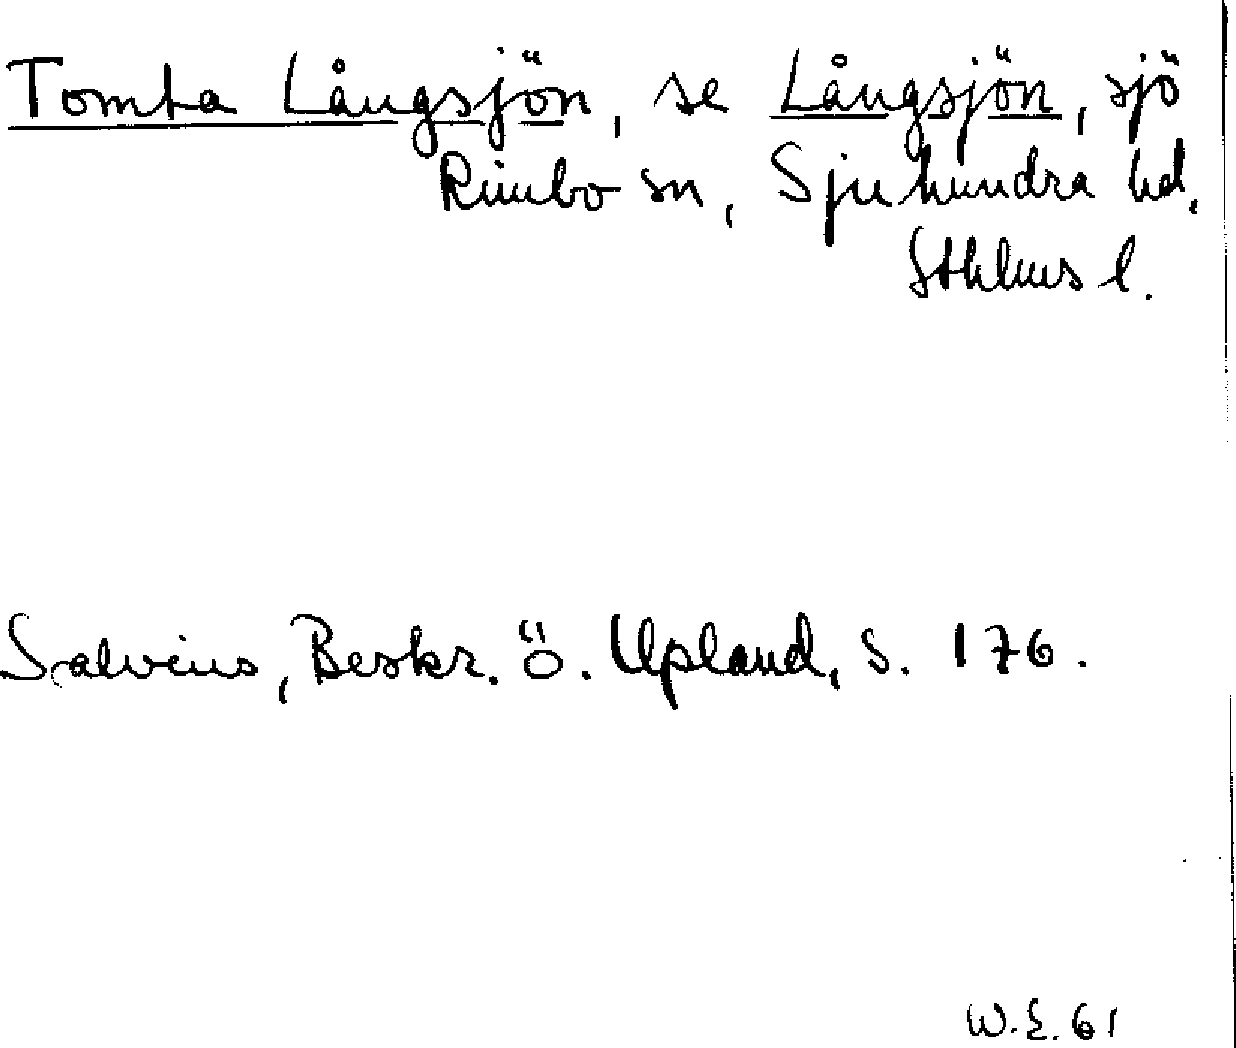 Tomta Långsjön, se Långsjön, sjö
Rimbo sn, Sjuhundra hd,
Sthlms l.
Salvius, Beskr. ö. Upland, s. 176.
W.E. 61